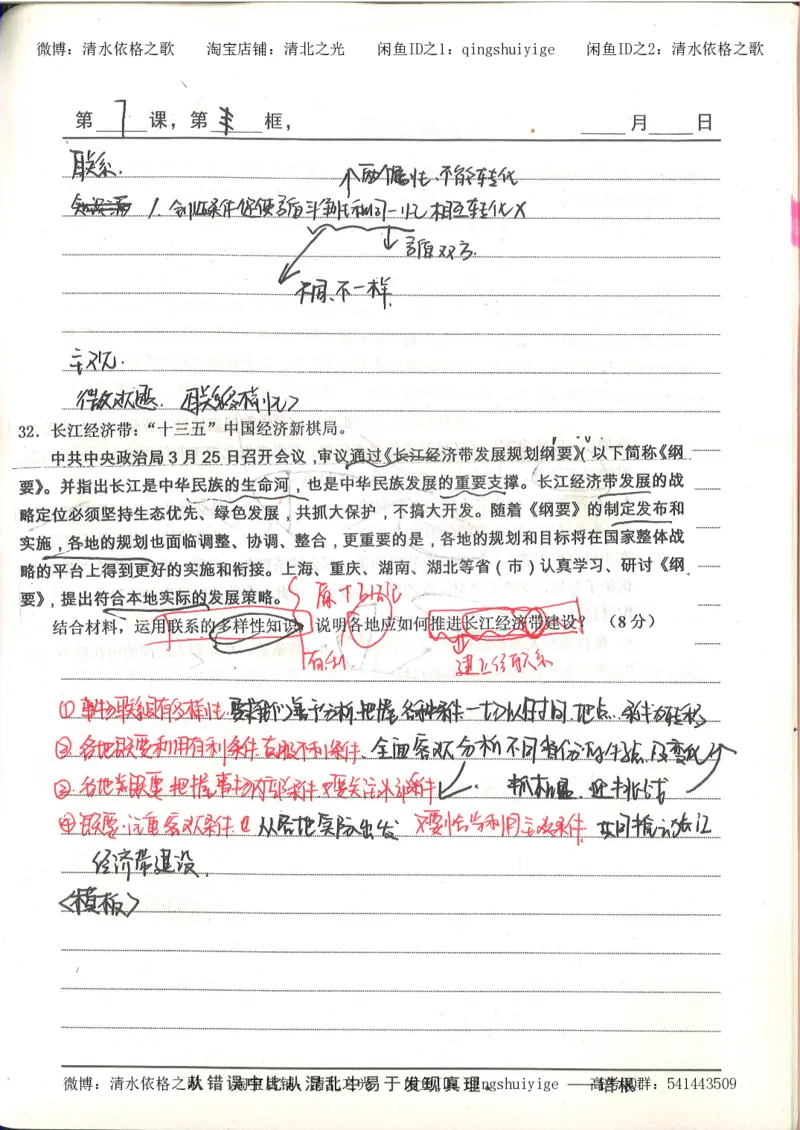 微博：清水依格之歌 淘宝店铺：清北之光 闲鱼ID之1：qingshuiyige 闲鱼ID之2：清水依格之歌
第 7 课，第 框， 月 日
联系.
个两个属性.不能转化
1. 创造条件促使矛盾斗争性和同一性相互转化 X
矛盾双方.
不同、不一样.
主观.
联系多样性>
32．长江经济带：“十三五”中国经济新棋局。
中共中央政治局 3 月 25 日召开会议，审议通过《长江经济带发展规划纲要》（以下简称《纲
要》）。并指出长江是中华民族的生命河，也是中华民族发展的重要支撑。长江经济带发展的战
略定位必须坚持生态优先、绿色发展，共抓大保护，不搞大开发。随着《纲要》的制定发布和
实施，各地的规划也面临调整、协调、整合，更重要的是，各地的规划和目标将在国家整体战
略的平台上得到更好的实施和衔接。上海、重庆、湖南、湖北等省（市）认真学习、研讨《纲
要》，提出符合本地实际的发展策略。
结合材料，运用联系的多样性知识，说明各地应如何推进长江经济带建设？（8 分）
有利. 建立新联系
①事物联系具有多样性.要求我们善于分析.把握各种条件.一切以时间.地点.条件为转移
②各地既要利用有利条件.克服不利条件、全面客观分析不同省份的特点及变化
抓机遇.迎挑战
③各地既要把握事物内部条件.又要关注外部条件
④既要注重客观条件. 从各地实际出发 又要恰当利用主观条件. 共同推动长江
经济带建设.
<模板>
微博：清水依格之歌 淘宝店铺：清北之光 闲鱼ID：qingshuiyige 高考QQ群：541443509
从错误中比从混乱中易于发现真理。 ——培根